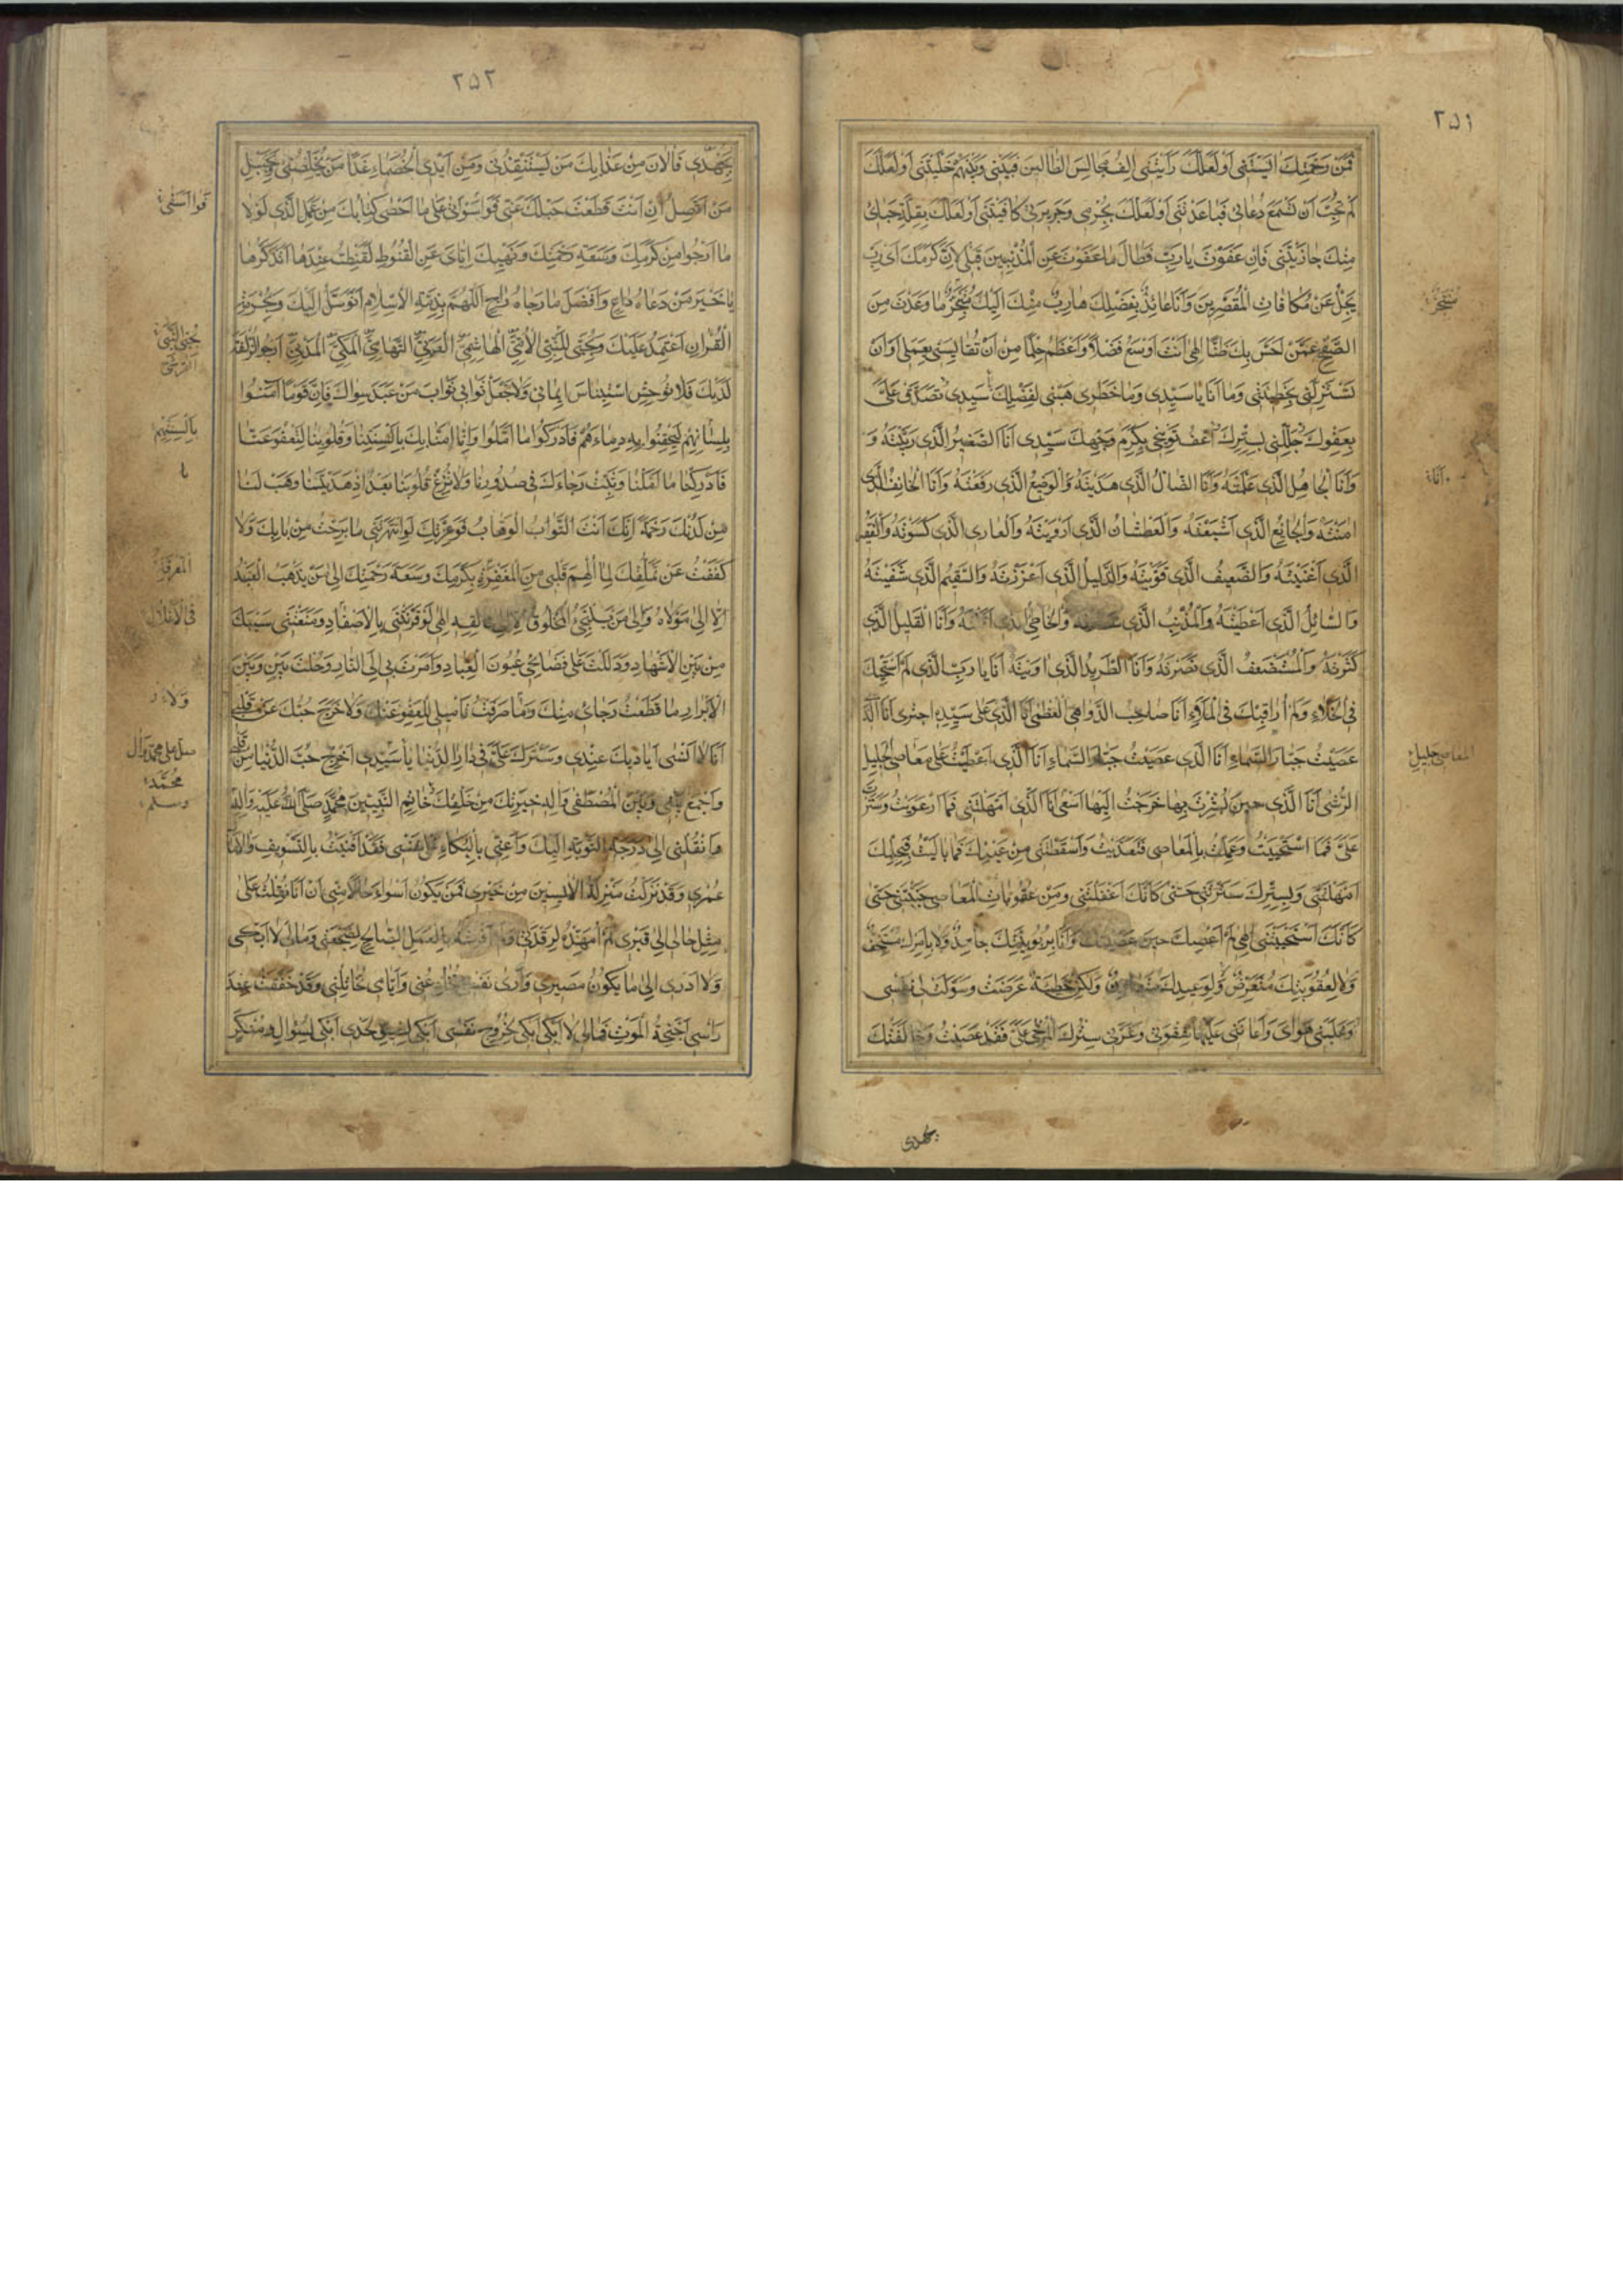 ٢٥١
فَمِنْ رَحْمَتِكَ اٰيَسْتَنى اَوْ لَعَلَّكَ رَاَيْتَنى اٰلِفَ مَجالِسِ البَطّالينَ فَبَيْنى وَبَيْنَهُمْ خَلَّيْتَنى اَوْ لَعَلَّكَ
لَمْ تُحِبَّ اَنْ تَسْمَعَ دُعائى فَباعَدْتَنى اَوْ لَعَلَّكَ بِجُرْمى وَجَريرَتى كافَيْتَنى اَوْ لَعَلَّكَ بِقِلَّةِ حَيائى
مِنْكَ جازَيْتَنى فَاِنْ عَفَوْتَ يارَبِّ فَطالَ ما عَفَوْتَ عَنِ الْمُذْنِبينَ قَبْلى لِاَنَّ كَرَمَكَ اَىْ رَبِّ
يَجِلُّ عَنْ مُكافاتِ الْمُقَصِّرينَ وَاَنَا عائِذٌ بِفَضْلِكَ هارِبٌ مِنْكَ اِلَيْكَ مُنْتَجِزٌ ما وَعَدْتَ مِنَ
الصَّفْحِ عَمَّنْ اَحْسَنَ بِكَ ظَنًّا اِلٰهى اَنْتَ اَوْسَعُ فَضْلًا وَاَعْظَمُ حِلْمًا مِنْ اَنْ تُقايِسَنى بِعَمَلى وَاَنْ
تَسْتَزِلَّنى بِخَطيئَتى وَما اَنَا ياسَيِّدى وَما خَطَرى هَبْنى لِفَضْلِكَ سَيِّدى تَصَدَّقْ عَلَىَّ
بِعَفْوِكَ جَلِّلْنى بِسِتْرِكَ اعْفُ عَنْ تَوْبيخى بِكَرَمِ وَجْهِكَ سَيِّدى اَنَا الصَّغيرُ الَّذى رَبَّيْتَهُ وَ
وَاَنَا الْجاهِلُ الَّذى عَلَّمْتَهُ وَاَنَا الضّالُّ الَّذى هَدَيْتَهُ وَالْوَضيعُ الَّذى رَفَعْتَهُ وَاَنَا الْخائِفُ الَّذى
اٰمَنْتَهُ وَالْجائِعُ الَّذى اَشْبَعْتَهُ وَالْعَطْشانُ الَّذى اَرْوَيْتَهُ وَالْعارى الَّذى كَسَوْتَهُ وَالْفَقيرُ
الَّذى اَغْنَيْتَهُ وَالضَّعيفُ الَّذى قَوَّيْتَهُ وَالذَّليلُ الَّذى اَعْزَزْتَهُ وَالسَّقيمُ الَّذى شَفَيْتَهُ
وَالسّائِلُ الَّذى اَعْطَيْتَهُ وَالْمُذْنِبُ الَّذى سَتَرْتَهُ وَالْخاطِئُ الَّذى اَقَلْتَهُ وَاَنَا الْقَليلُ الَّذى
كَثَّرْتَهُ وَالْمُسْتَضْعَفُ الَّذى نَصَرْتَهُ وَاَنَا الطَّريدُ الَّذى اٰوَيْتَهُ اَنَا يارَبِّ الَّذى لَمْ اَسْتَحْيِكَ
فِى الْخَلاءِ وَلَمْ اُراقِبْكَ فِى الْمَلاءِ اَنَا صاحِبُ الدَّواهِى الْعُظْمى اَنَا الَّذى عَلى سَيِّدِهِ اجْتَرى اَنَا الَّذى
عَصَيْتُ جَبّارَ السَّماءِ اَنَا الَّذى عَصَيْتُ جَبّارَ السَّماءِ اَنَا الَّذى اَعْطَيْتُ عَلى مَعاصِى الْجَليلِ
الرُّشى اَنَا الَّذى حينَ بُشِّرْتُ بِها خَرَجْتُ اِلَيْها اَسْعى اَنَا الَّذى اَمْهَلْتَنى فَمَا ارْعَوَيْتُ وَسَتَرْتَ
عَلَىَّ فَمَا اسْتَحْيَيْتُ وَعَمِلْتُ بِالْمَعاصى فَتَعَدَّيْتُ وَاَسْقَطْتَنى مِنْ عَيْنِكَ فَما بالَيْتُ فَبِحِلْمِكَ
اَمْهَلْتَنى وَبِسِتْرِكَ سَتَرْتَنى حَتّى كَاَنَّكَ اَغْفَلْتَنى وَمِنْ عُقُوباتِ الْمَعاصى جَنَّبْتَنى حَتّى
كَاَنَّكَ اسْتَحْيَيْتَنى اِلٰهى لَمْ اَعْصِكَ حينَ عَصَيْتُكَ وَاَنَا بِرُبُوبِيَّتِكَ جاحِدٌ وَلا بِاَمْرِكَ مُسْتَخِفٌّ
وَلا لِعُقُوبَتِكَ مُتَعَرِّضٌ وَلا لِوَعيدِكَ مُتَهاوِنٌ وَلٰكِنْ خَطيئَةٌ عَرَضَتْ وَسَوَّلَتْ لى نَفْسى
وَغَلَبَنى هَواىَ وَاَعانَنى عَلَيْها شِقْوَتى وَغَرَّنى سِتْرُكَ الْمُرْخى عَلَىَّ فَقَدْ عَصَيْتُكَ وَخالَفْتُكَ
بجهدى
مُنْتَجِزٌ
اَنَا
مَعاصِى الْجَليلِ
٢٥٢
بِجُهْدى فَالْاٰنَ مِنْ عَذابِكَ مَنْ يَسْتَنْقِذُنى وَمِنْ اَيْدِى الْخُصَماءِ غَدًا مَنْ يُخَلِّصُنى وَبِحَبْلِ
مَنْ اَتَّصِلُ اِنْ اَنْتَ قَطَعْتَ حَبْلَكَ عَنّى فَواسَوْاَتى عَلى ما اَحْصى كِتابُكَ مِنْ عَمَلِى الَّذى لَوْلا
ما اَرْجُوا مِنْ كَرَمِكَ وَسَعَةِ رَحْمَتِكَ وَنَهْيِكَ اِيّاىَ عَنِ الْقُنُوطِ لَقَنَطْتُ عِنْدَما اَتَذَكَّرُها
ياخَيْرَ مَنْ دَعاهُ داعٍ وَاَفْضَلَ مارَجاهُ راجٍ اَللّهُمَّ بِذِمَّةِ الْاِسْلامِ اَتَوَسَّلُ اِلَيْكَ وَبِحُرْمَةِ
الْقُرْاٰنِ اَعْتَمِدُ عَلَيْكَ وَبِحُبّى لِلنَّبِىِّ الْاُمِّىِّ الْهاشِمِىِّ الْعَرَبِىِّ التَّهامِىِّ الْمَكِّىِّ الْمَدَنِىِّ اَرْجُو الزُّلْفَةَ
لَدَيْكَ فَلا تُوحِشِ اسْتيناسَ ايمانى وَلا تَجْعَلْ ثَوابى ثَوابَ مَنْ عَبَدَ سِواكَ فَاِنَّ قَوْمًا اٰمَنُوا
بِلِسانِهِمْ لِيَحْقِنُوا بِهِ دِماءَهُمْ فَاَدْرَكُوا ما اَمَّلُوا وَاِنّا اٰمَنّا بِكَ بِاَلْسِنَتِنا وَقُلُوبِنا لِتَعْفُوَ عَنّا
فَاَدْرِكْنا ما اَمَّلْنا وَثَبِّتْ رَجاءَكَ فى صُدُورِنا وَلا تُزِغْ قُلُوبَنا بَعْدَ اِذْ هَدَيْتَنا وَهَبْ لَنا
مِنْ لَدُنْكَ رَحْمَةً اِنَّكَ اَنْتَ الْوَهّابُ فَوَعِزَّتِكَ لَوِ انْتَهَرْتَنى ما بَرِحْتُ مِنْ بابِكَ وَلا
كَفَفْتُ عَنْ تَمَلُّقِكَ لِما اُلْهِمَ قَلْبى مِنَ الْمَعْرِفَةِ بِكَرَمِكَ وَسَعَةِ رَحْمَتِكَ اِلى مَنْ يَذْهَبُ الْعَبْدُ
اِلّا اِلى مَوْلاهُ وَاِلى مَنْ يَلْتَجِئُ الْمَخْلُوقُ اِلّا اِلى خالِقِهِ اِلٰهى لَوْ قَرَنْتَنى بِالْاَصْفادِ وَمَنَعْتَنى سَيْبَكَ
مِنْ بَيْنِ الْاَشْهادِ وَدَلَلْتَ عَلى فَضائِحى عُيُونَ الْعِبادِ وَاَمَرْتَ بى اِلَى النّارِ وَحُلْتَ بَيْنى وَبَيْنَ
الْاَبْرارِ ما قَطَعْتُ رَجائى مِنْكَ وَما صَرَفْتُ تَاْميلى لِلْعَفْوِ عَنْكَ وَلا خَرَجَ حُبُّكَ عَنْ قَلْبى
اَنَا لا اَنْسى اَيادِيَكَ عِنْدى وَسَتْرَكَ عَلَىَّ فى دارِ الدُّنْيا ياسَيِّدى اَخْرِجْ حُبَّ الدُّنْيا مِنْ قَلْبى
وَاجْمَعْ بَيْنى وَبَيْنَ الْمُصْطَفى وَاٰلِهِ خِيَرَتِكَ مِنْ خَلْقِكَ خاتَمِ النَّبِيّينَ مُحَمَّدٍ صَلَّى اللهُ عَلَيْهِ وَاٰلِهِ
وَانْقُلْنى اِلى دَرَجَةِ التَّوْبَةِ اِلَيْكَ وَاَعِنّى بِالْبُكاءِ عَلى نَفْسى فَقَدْ اَفْنَيْتُ بِالتَّسْويفِ وَالْاٰمالِ
عُمْرى وَقَدْ نَزَلْتُ مَنْزِلَةَ الْاٰيِسينَ مِنْ خَيْرى فَمَنْ يَكُونُ اَسْوَءَ حالًا مِنّى اِنْ اَنَا نُقِلْتُ عَلى
مِثْلِ حالى اِلى قَبْرى لَمْ اُمَهِّدْهُ لِرَقْدَتى وَلَمْ اَفْرُشْهُ بِالْعَمَلِ الصّالِحِ لِضَجْعَتى وَمالى لا اَبْكى
وَلا اَدْرى اِلى ما يَكُونُ مَصيرى وَاَرى نَفْسى تُخادِعُنى وَاَيّامى تُخاتِلُنى وَقَدْ خَفَقَتْ عِنْدَ
رَاْسى اَجْنِحَةُ الْمَوْتِ فَمالى لا اَبْكى اَبْكى لِخُرُوجِ نَفْسى اَبْكى لِضيقِ لَحْدى اَبْكى لِسُؤالِ مُنْكَرٍ
فَوا اَسَفى
بِحُبِّى النَّبِىَّ
الْقُرَشِىَّ
بِاَلْسِنَتِهِمْ
الْمَعْرِفَةِ
وَلا
صل على محمد وآل
محمد
وسلم